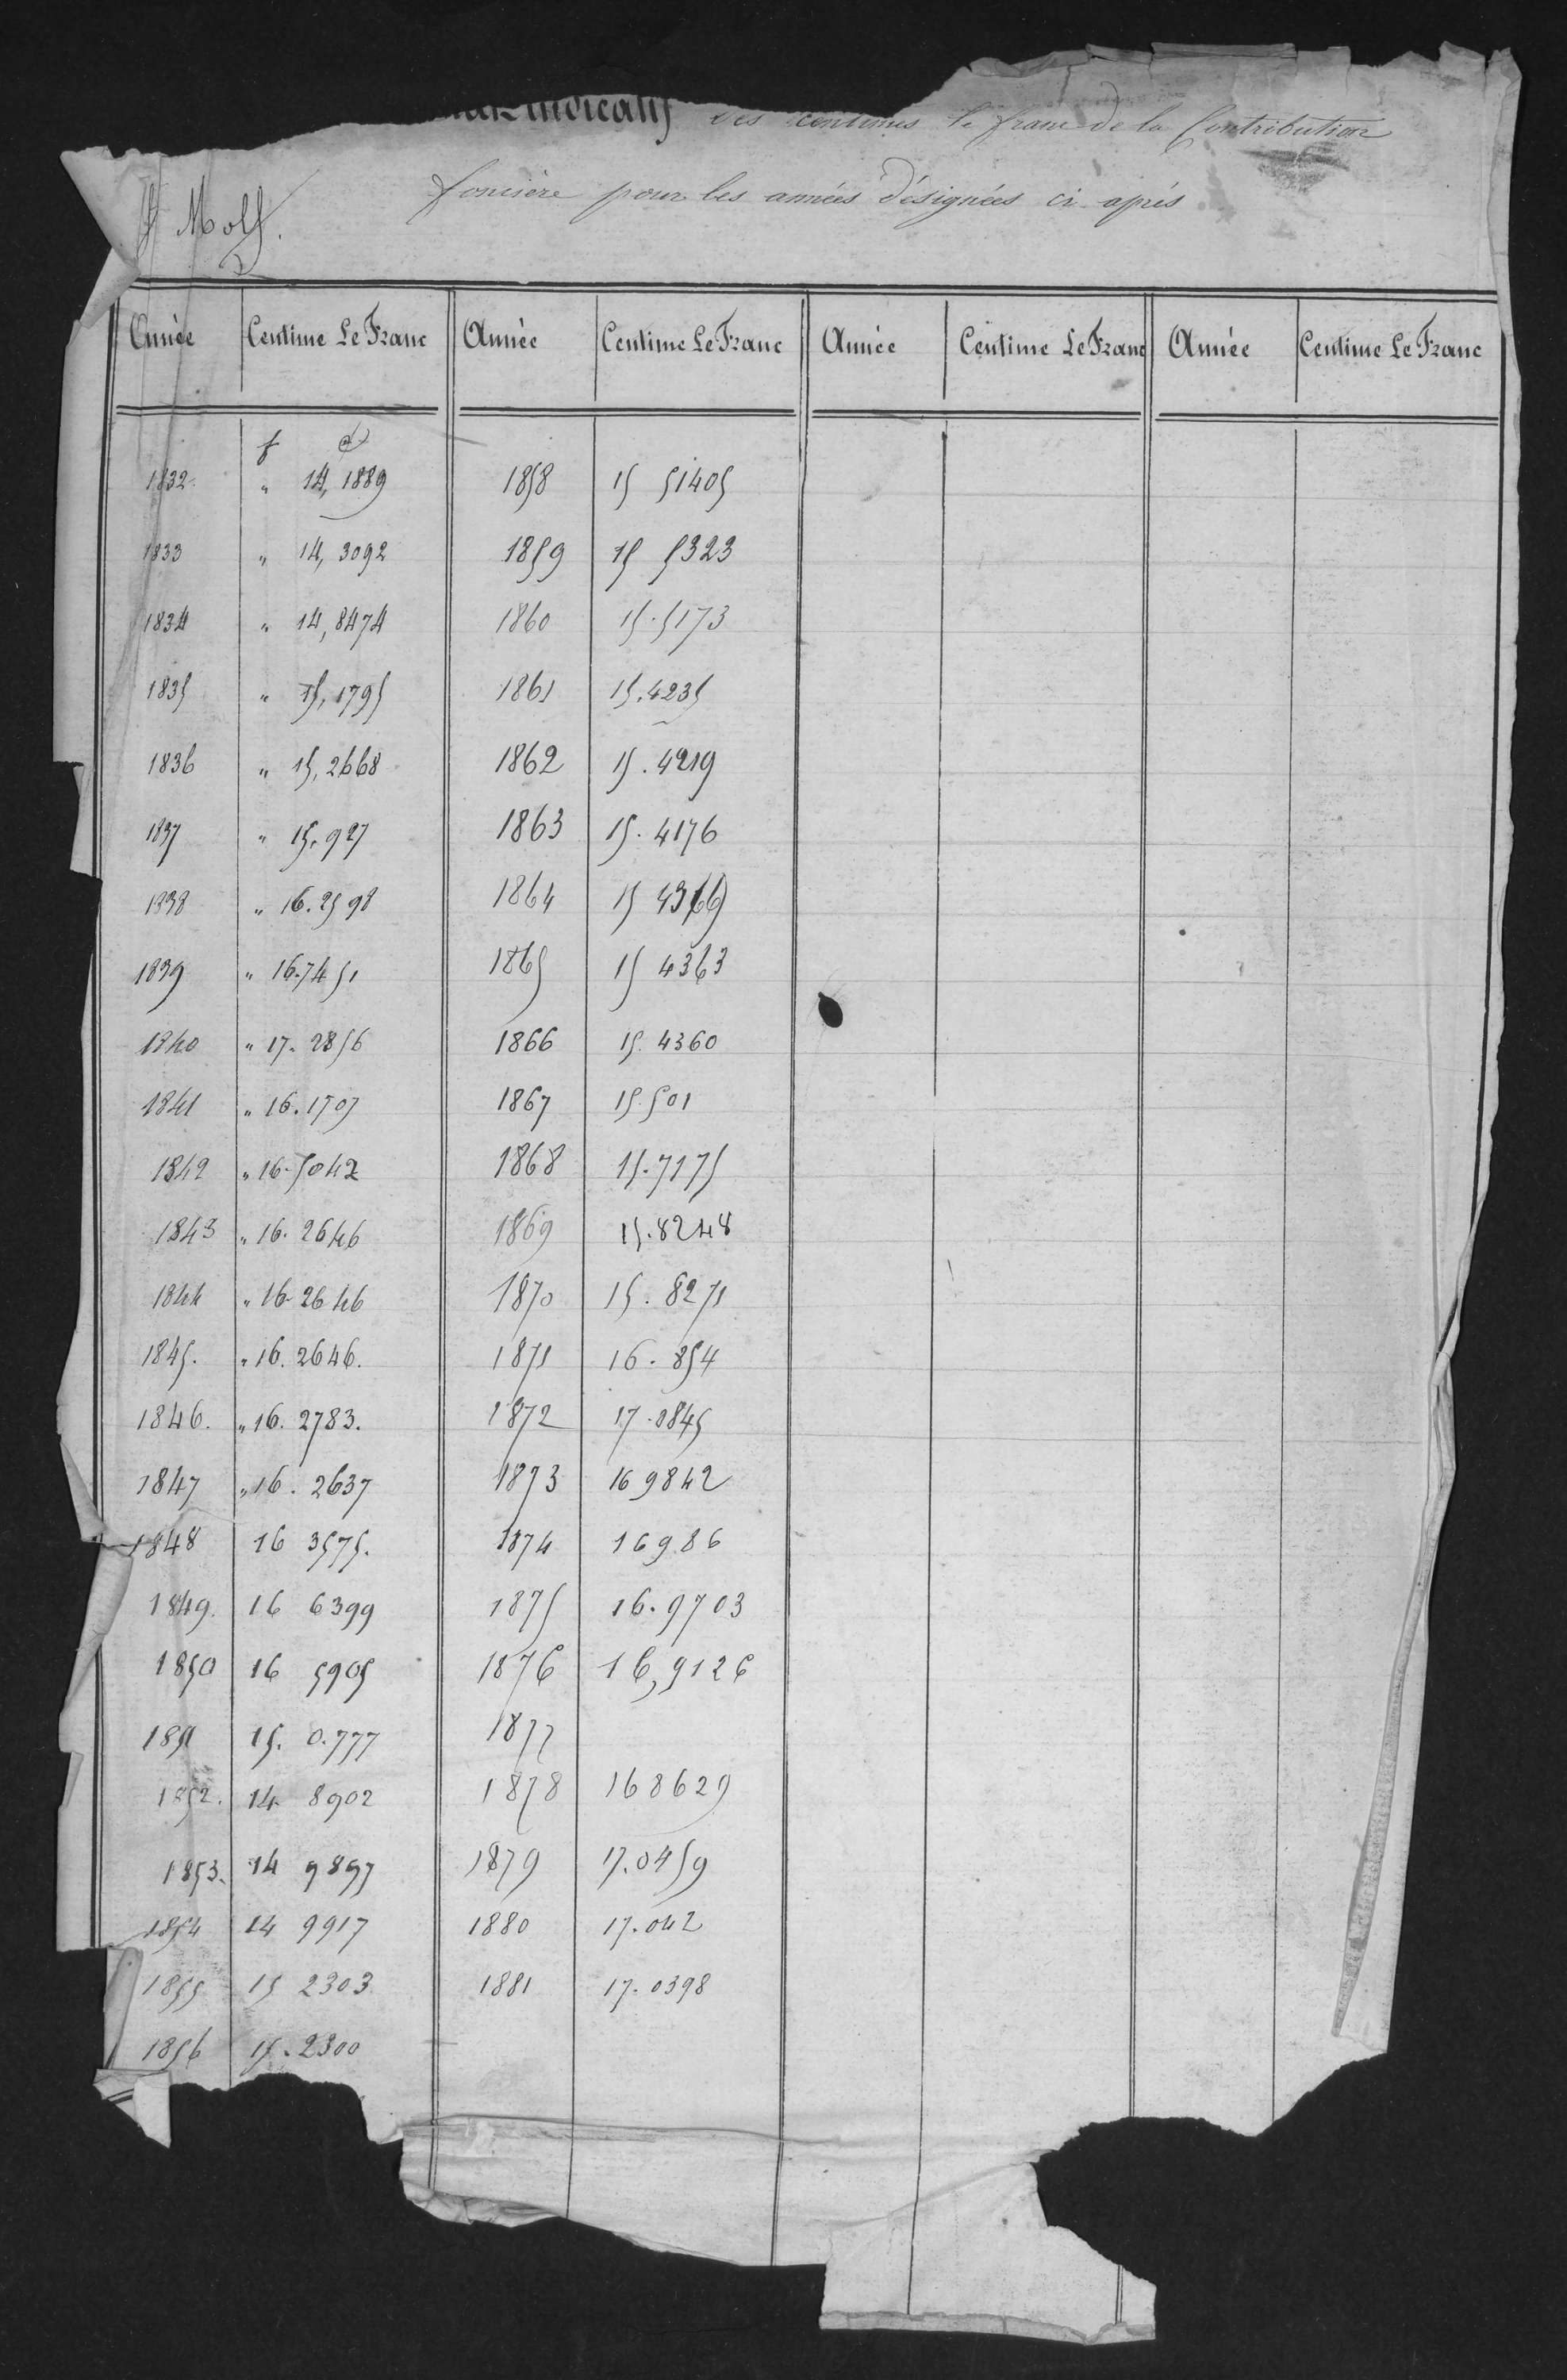 Indicatif des centimes le franc de la Contribution
foncière pour les années désignées ci après
St Molf.
Année Centime Le Franc Année Centime Le Franc Année Centime Le Franc Année Centime Le Franc
f c
1832 " 14,1889 1858 15 51405
1833 " 14,3092 1859 15 5323
1834 " 14,8474 1860 15.5173
1835 " 15,1795 1861 15.4235
1836 " 15,2668 1862 15.4219
1837 " 15.927 1863 15.4176
1838 " 16.2598 1864 15 4366
1839 " 16.7451 1865 15 4363
1840 " 17.2856 1866 15.4360
1841 " 16.1707 1867 15.501
1842 " 16.5042 1868 15.7175
1843 " 16.2646 1869 15.8248
1844 " 16.2646 1870 15.8271
1845. " 16.2646. 1871 16.854
1846. " 16.2783. 1872 17.0845
1847 " 16.2637 1873 16 9842
1848 16 3575. 1874 16986
1849. 16 6399 1875 16.9703
1850 16 5905 1876 16,9126
1851 15. 0.777 1877
1852. 14 8902 1878 168629
1853. 14 9897 1879 17.0459
1854 14 9917 1880 17.042
1855 15 2303 1881 17.0398
1856 15.2300